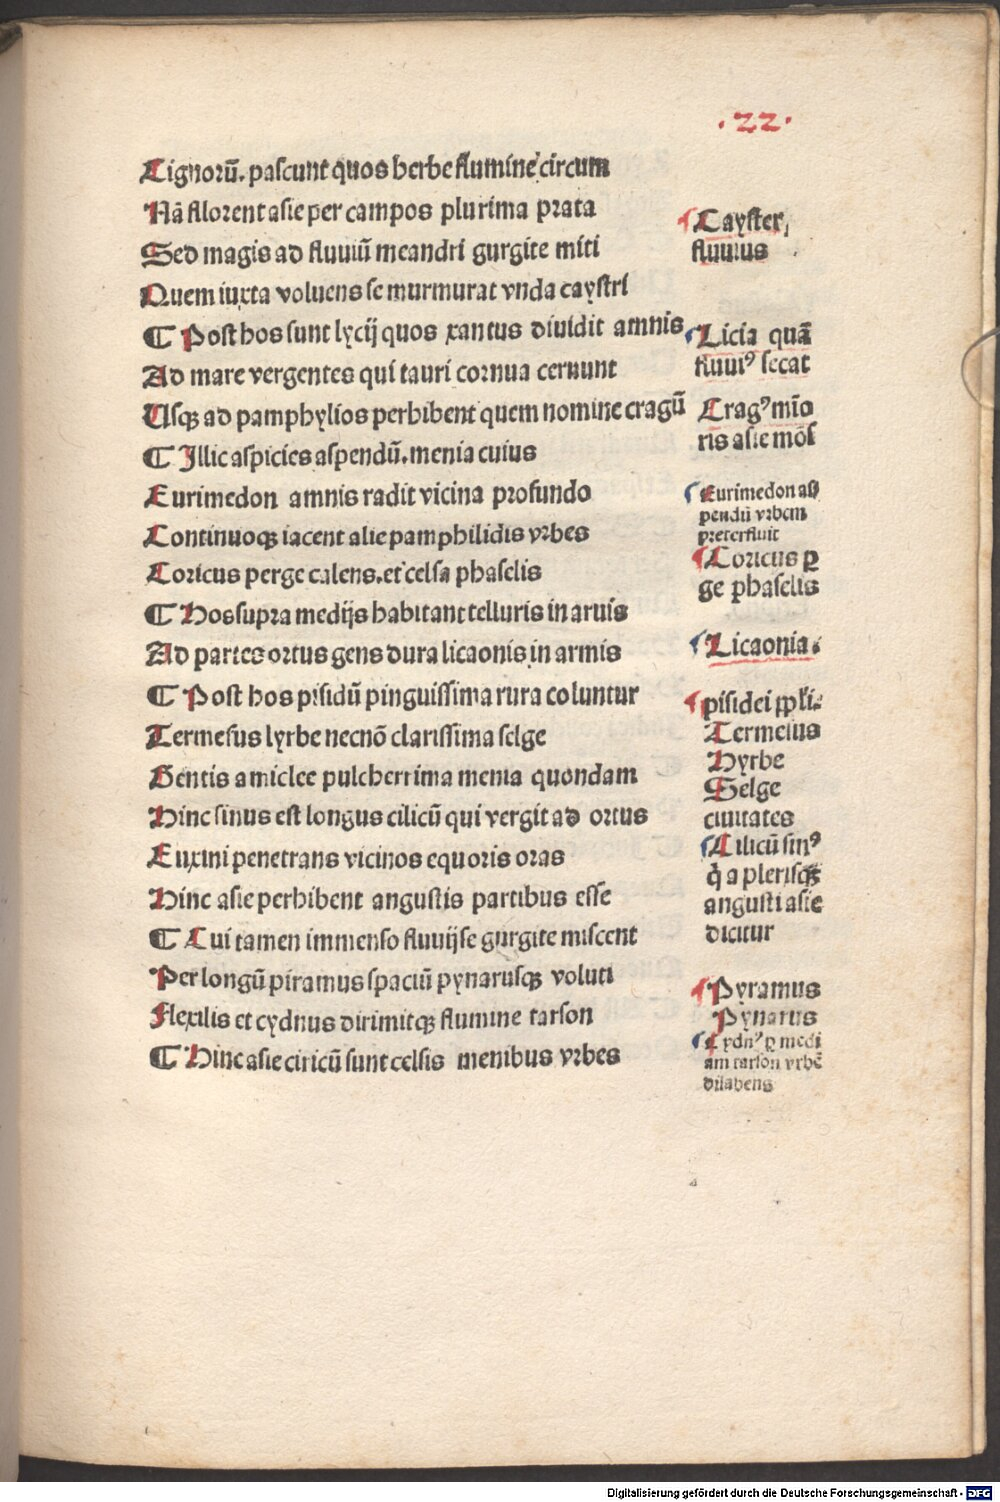 .22.
Cignorū. pascunt quos herbe flumine circum
Nā fllorent asie per campos plurima prata
Sed magis ad fluuiū meandri gurgite miti
Quem iuxta voluens se murmurat vnda caystri
¶ Post hos sunt lycij quos xantus diuidit amnis
Ad mare vergentes qui tauri cornua cernunt
Usqꝫ ad pamphylios perhibent quem nomine cragū
¶ Illic aspicies aspendū. menia cuius
Eurimedon amnis radit vicina profundo
Continuoqꝫ iacent alie pamphilidis vrbes
Coricus perge calens. et celsa phaselis
¶ Hos supra medijs habitant telluris in aruis
Ad partes ortus gens dura licaonis in armis
¶ Post hos pisidū pinguissima rura coluntur
Termesus lyrbe necnō clarissima selge
Gentis amiclee pulcherrima menia quondam
Hinc sinus est longus cilicū qui vergit ad ortus
Euxini penetrans vicinos equoris oras
Hinc asie perhibent angustis partibus esse
¶ Cui tamen immenso fluuij se gurgite miscent
Per longū piramus spaciū pynarusqꝫ voluti
Flexilis et cydnus dirimitqꝫ flumine tarson
¶ Hinc asie ciricū sunt celsis menibus vrbes
Cayster,
fluuius
Licia quā
fluuiꝰ secat
Cragꝰ mīo
ris asie mōs
Eurimedon as
pendū vrbem
preterfluit
Coricus ꝑ
ge phaselis
Licaonia.
pisidei
Termesus
Hyrbe
Selge
ciuitates
Cilicū sinꝰ
q̇ a plerisqꝫ
angusti asie
dicitur
Pyramus
Pynarus
Cydnꝰ ꝑ medi
am tarson vrbē
dilabens
Digitalisierung gefördert durch die Deutsche Forschungsgemeinschaft - DFG